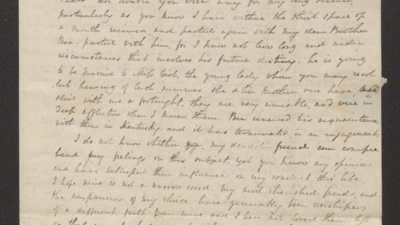 not doubt you will away for my long silence,
particularly as you know I have within the short space of
a month received and parted again with my dear Brother
Ben. parted with him, for I know not how long and under
circumstances that involves his future destiny. he is going
to be married to Miss the young lady whom you may recol-
lect hearing of last summer. She & her Mother were here and
staid with me a fortnight. they are very amiable and were in
deep affliction when I knew them. Ben renewed his acquaintance
with them in Kentucky and it has terminated in an engagement.
I do not know whether my dearest friend can compre-
hend my feelings on this subject, yet you know my opinions
and have witnessed their influence on my conduct thro life.
I hope mine is not a narrow creed. My most cherished friends, and
the companions of my choice have generally been worshipers
of a different faith from mine and I have not loved them less